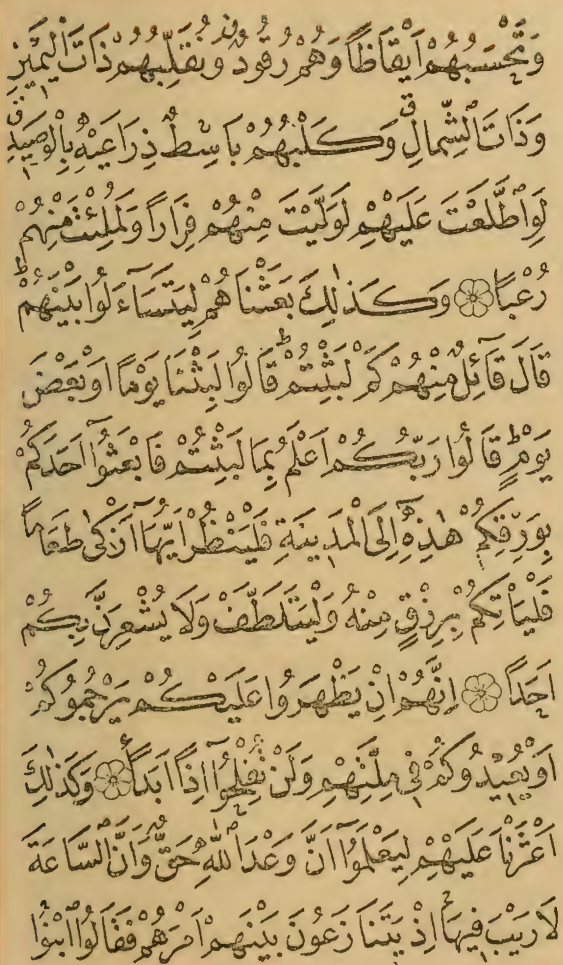 وَتَحْسَبُهُمْ اَيْقَاظًا وَهُمْ رُقُودٌ وَنُقَلِّبُهُمْ ذَاتَ الْيَمِينِ
وَذَاتَ الشِّمَالِ وَكَلْبُهُمْ بَاسِطٌ ذِرَاعَيْهِ بِالْوَصِيدِ
لَوِ اطَّلَعْتَ عَلَيْهِمْ لَوَلَّيْتَ مِنْهُمْ فِرَارًا وَلَمُلِئْتَ مِنْهُمْ
رُعْبًا وَكَذٰلِكَ بَعَثْنَاهُمْ لِيَتَسَآءَلُوا بَيْنَهُمْ
قَالَ قَآئِلٌ مِنْهُمْ كَمْ لَبِثْتُمْ قَالُوا لَبِثْنَا يَوْمًا اَوْ بَعْضَ
يَوْمٍ قَالُوا رَبُّكُمْ اَعْلَمُ بِمَا لَبِثْتُمْ فَابْعَثُوٓا اَحَدَكُمْ
بِوَرِقِكُمْ هٰذِهِٓ اِلَى الْمَدِينَةِ فَلْيَنْظُرْ اَيُّهَآ اَزْكٰى طَعَامًا
فَلْيَاْتِكُمْ بِرِزْقٍ مِنْهُ وَلْيَتَلَطَّفْ وَلَا يُشْعِرَنَّ بِكُمْ
اَحَدًا اِنَّهُمْ اِنْ يَظْهَرُوا عَلَيْكُمْ يَرْجُمُوكُمْ
اَوْ يُعِيدُوكُمْ فِي مِلَّتِهِمْ وَلَنْ تُفْلِحُوٓا اِذًا اَبَدًا وَكَذٰلِكَ
اَعْثَرْنَا عَلَيْهِمْ لِيَعْلَمُوٓا اَنَّ وَعْدَ اللّٰهِ حَقٌّ وَاَنَّ السَّاعَةَ
لَا رَيْبَ فِيهَا اِذْ يَتَنَازَعُونَ بَيْنَهُمْ اَمْرَهُمْ فَقَالُوا ابْنُوا